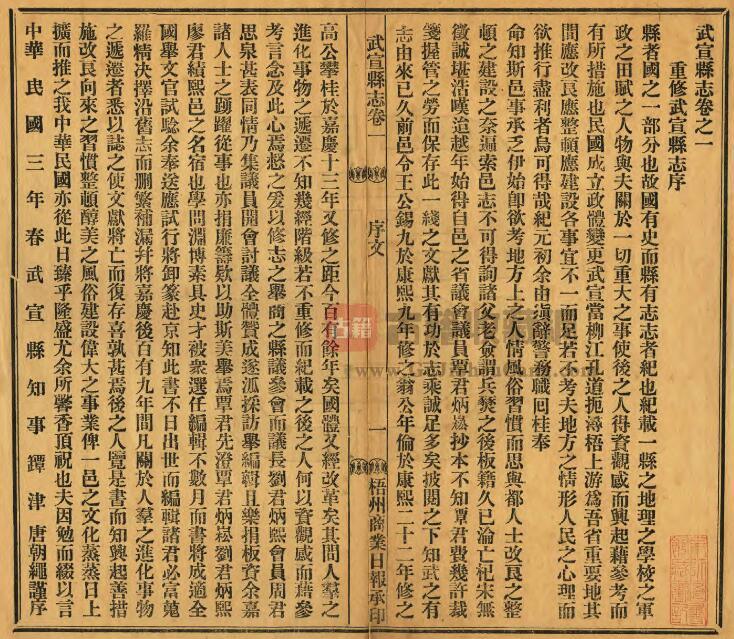 武宣縣志卷之一
重修武宣縣志序
縣者國之一部分也故國有史而縣有志志者紀也紀載一縣之地理之學校之軍
政之田賦之人物與夫關於一切重大之事使後之人得資觀感而興起藉參考而
有所措施也民國成立政體變更武宣當柳江孔道扼潯梧上游爲吾省重要地其
間應改良應整頓應建設各事宜不一而足若不考夫地方之情形人民之心理而
欲推行盡利者烏可得哉紀元初余由須辭警務職回桂奉
命知斯邑事承乏伊始卽欲考地方上之人情風俗習慣而思與都人士改良之整
頓之建設之奈遍索邑志不可得詢諸父老僉謂兵燹之後板籍久已淪亡杞宋無
徵誠堪浩嘆迨越年始得自邑之省議會議員覃君炳崧抄本不知覃君費幾許裁
箋握管之勞而保存此一綫之文獻其有功於志乘誠足多矣披閱之下知武之有
志由來已久前邑令王公錫九於康熙九年修之翁公年倫於康熙二十二年修之
武宣縣志卷一
序文
一
梧州商業日報承印
高公攀桂於嘉慶十三年又修之距今百有餘年矣國體又經改革矣其間人羣之
進化事物之遞遷不知幾經階級若不重修而紀載之後之人何以資觀感而藉參
考言念及此心焉惄之爰以修志之舉商之縣議參會而議長劉君炳熙會員周君
思泉甚表同情乃集議員開會討議全體贊成遂派採訪舉編輯且樂捐板資余嘉
諸人士之踴躍從事也亦捐廉籌欵以助斯美舉焉覃君先澄覃君炳崧劉君炳熙
廖君績熙邑之名宿也學問淵博素具史才被衆選任編輯不數月而書將成適全
國舉文官試騐余奉送應試行將卸篆赴京知此書不日出世而編輯諸君必富蒐
羅精決擇沿舊志而删繁補漏幷將嘉慶後百有九年間凡關於人羣之進化事物
之遞遷者悉以誌之使文獻將亡而復存喜孰甚焉後之人覽是書而知興起善措
施改良向來之習慣整頓醇美之風俗建設偉大之事業俾一邑之文化蒸蒸日上
擴而推之我中華民國亦從此日臻乎隆盛尤余所馨香頂祝也夫因勉而綴以言
中華民國三年春武宣縣知事鐔津唐朝繩謹序
古籍